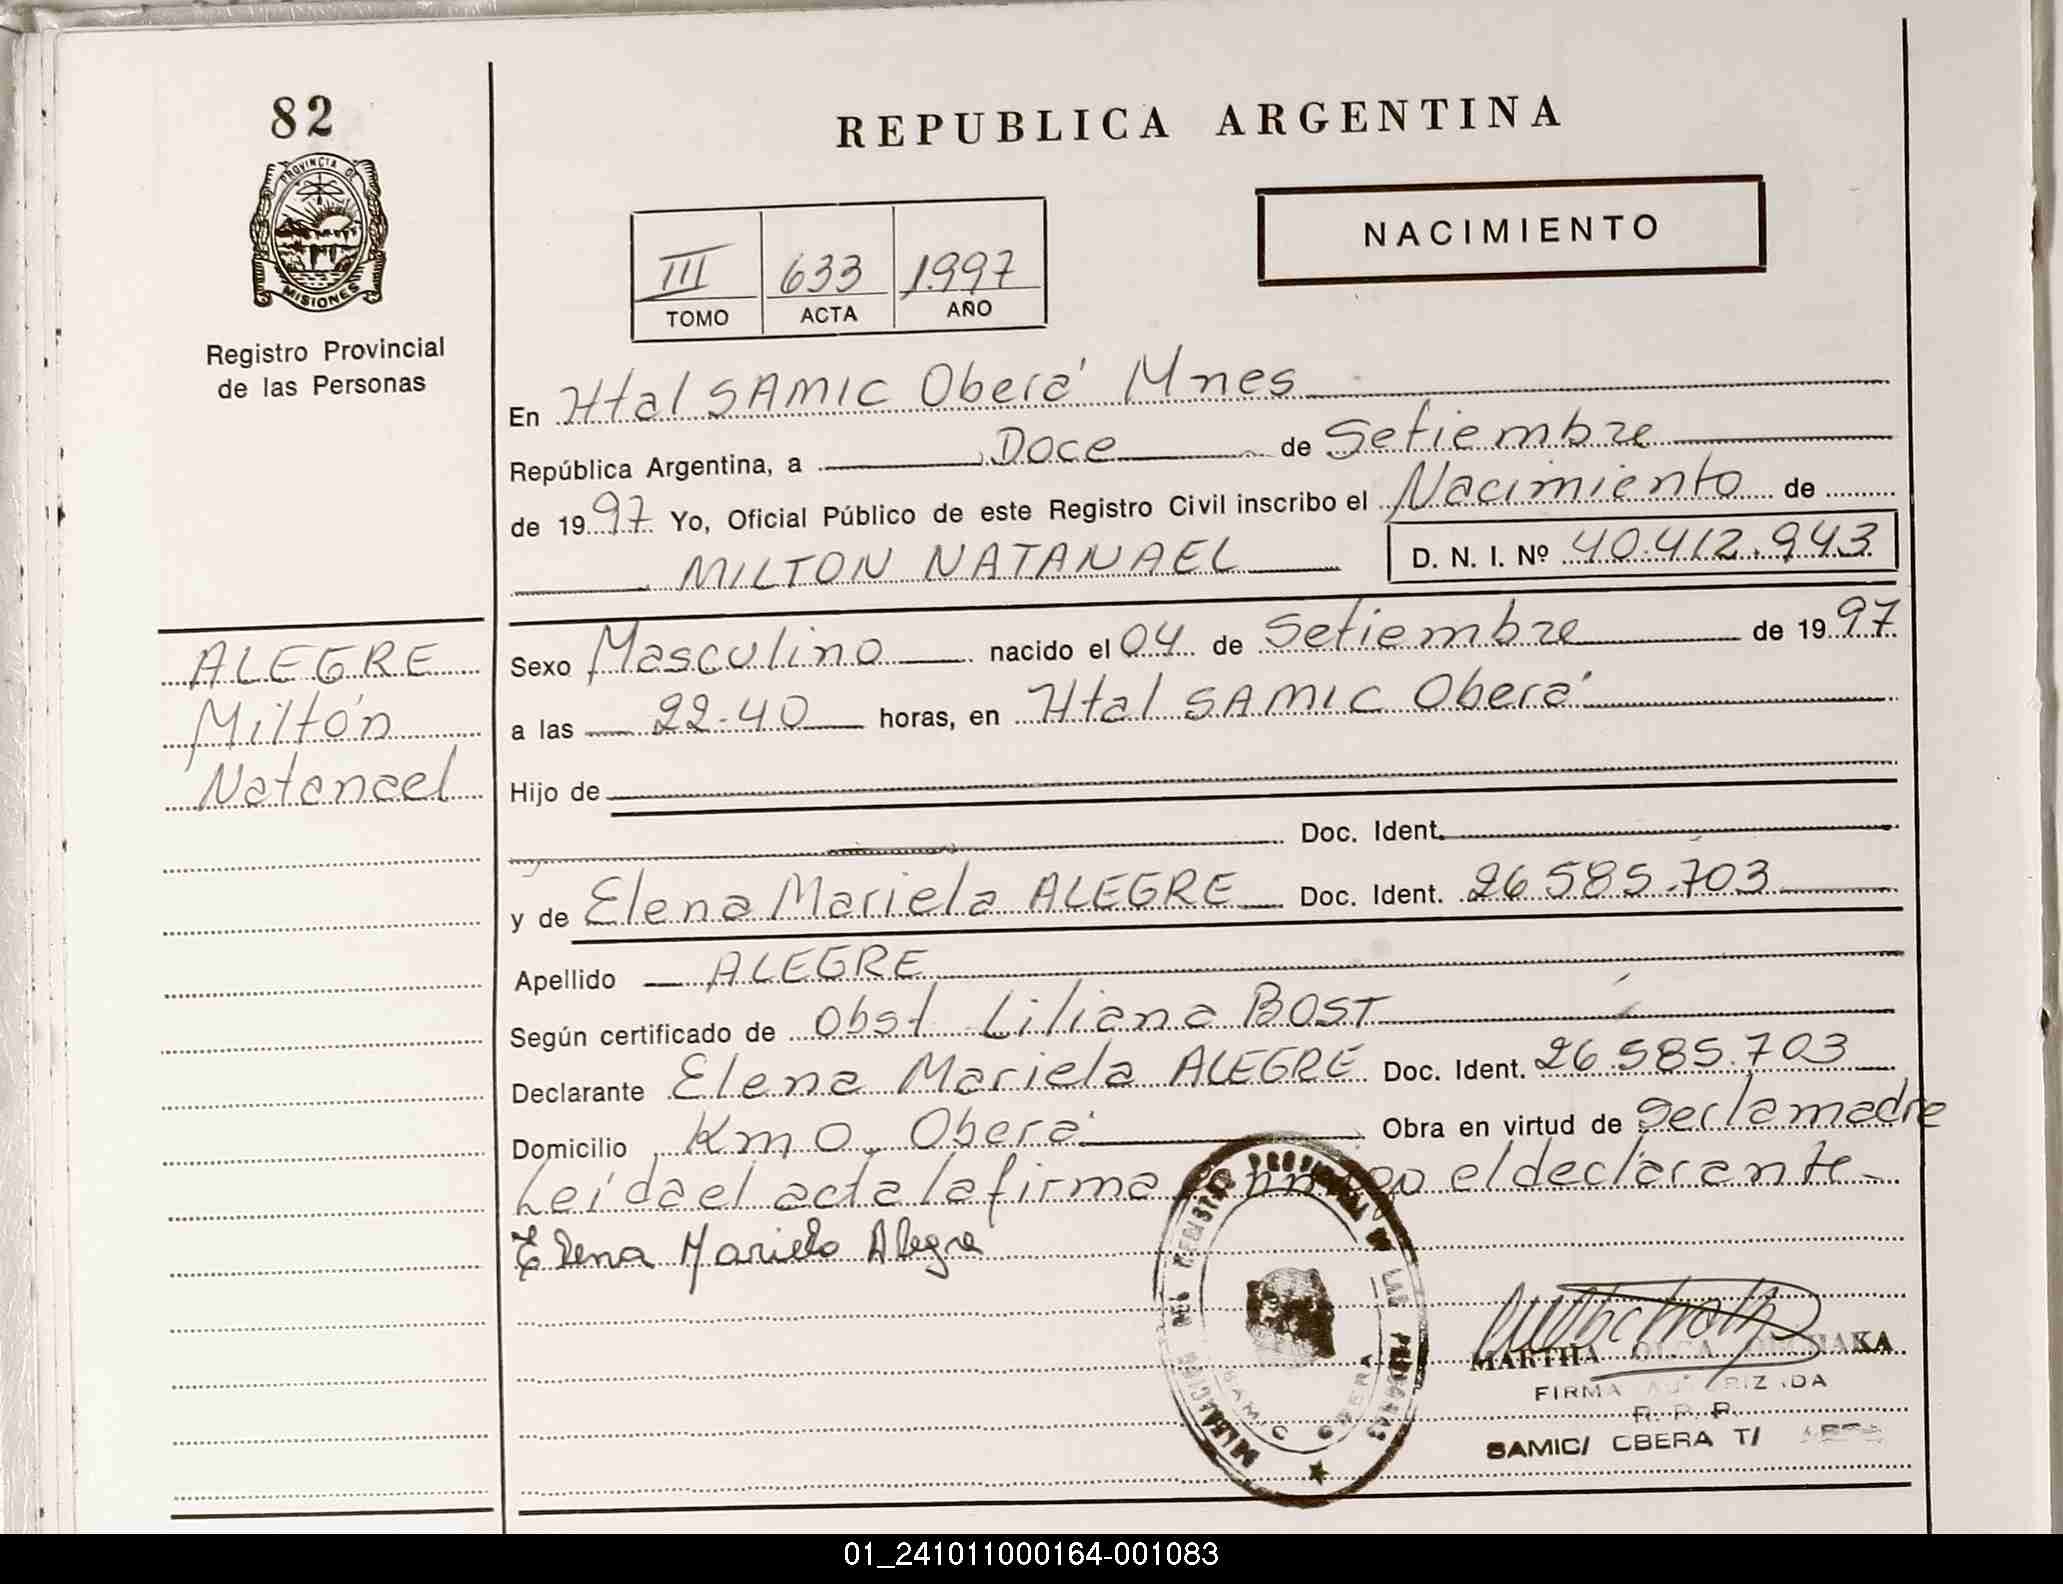 82
PROVINCIA DE
MISIONES
Registro Provincial
de las Personas
ALEGRE
Miltón
Natanael
REPUBLICA ARGENTINA
NACIMIENTO
III 633 1997
TOMO ACTA AÑO
En Htal SAMIC Oberá Mnes
República Argentina, a Doce de Setiembre
de 1997 Yo, Oficial Público de este Registro Civil inscribo el Nacimiento de
MILTON NATANAEL D. N. I. Nº 40.412.943
Sexo Masculino nacido el 04 de Setiembre de 1997
a las 22.40 horas, en Htal SAMIC Oberá
Hijo de
Doc. Ident.
y de Elena Mariela ALEGRE Doc. Ident. 26 585.703
Apellido ALEGRE
Según certificado de Obst Liliana BOST
Declarante Elena Mariela ALEGRE Doc. Ident. 26.585.703
Domicilio Km 0 Oberá Obra en virtud de Decla madre
Leída el acta la firma el declarante
Elena Mariela Alegre
DELEGACION DEL REGISTRO PROVINCIAL DE LAS PERSONAS
SAMIC OBERA
MARTHA OLGA
FIRMA AUTORIZADA
R. P. P.
SAMIC/ OBERA T/
01_241011000164-001083